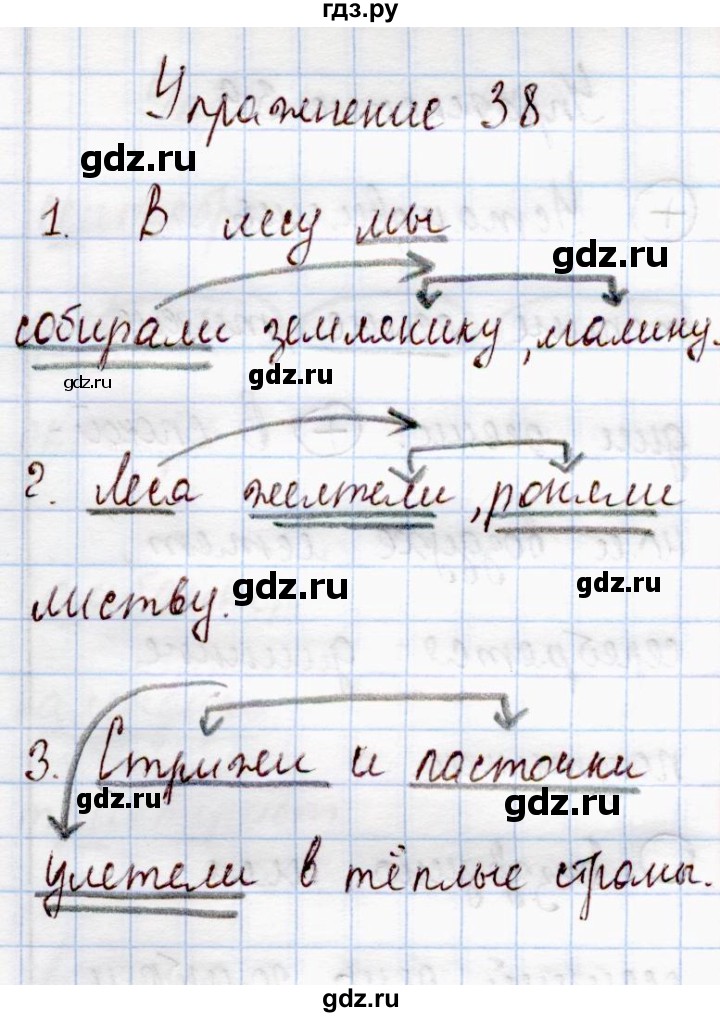 гдз.ру
Упражнение 38
gdz.ru
1. В лесу мы
gdz.ru
собирали землянику, малину.
gdz.ru
gdz.ru
2. Леса желтели, роняли
gdz.ru
gdz.ru
листву.
3. Стрижи и ласточки
gdz.ru
gdz.ru
улетели в тёплые страны.
gdz.ru